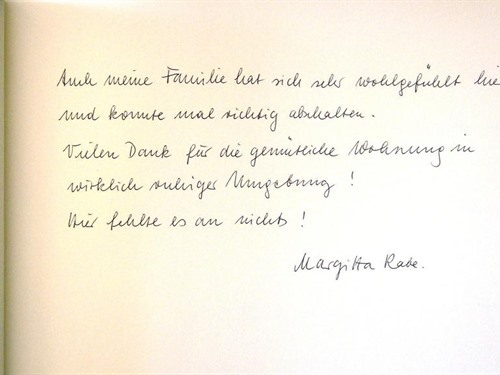 Auch meine Familie hat sich sehr wohlgefühlt hie
und konnte mal richtig abschalten.
Vielen Dank für die gemütliche Wohnung in
wirklich ruhiger Umgebung!
Hier fehlte es an nichts!
Margitta Rabe.